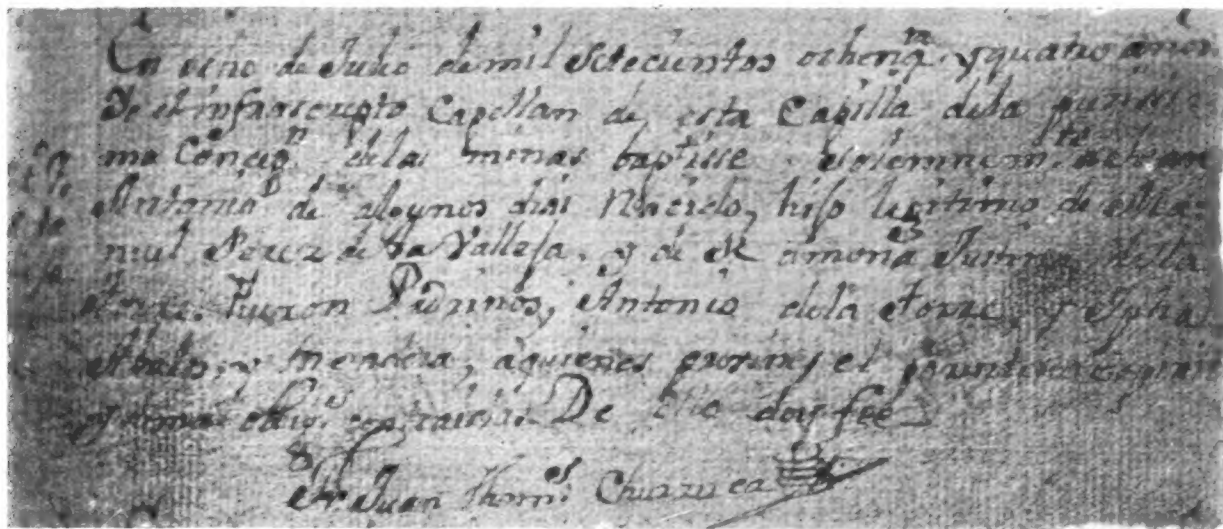 En ocho de Julio de mil Setecientos ochenta y quatro años
Yo el infraescripto Capellan de esta Capilla dela purissi
ma Concepn. delas minas baptisse solemnemte.
Antonio de algunos dias Nacido, hijo legitimo de Ma
nuel Perez de la Valleja, y de Ramona dela
Torre. Fueron Padrinos, Antonio dela Torre, y
y Mendoza, aquienes previne, el parentesco
y demas obligs. contraidas. De ello doy fee
Fr Juan Thoms. Churruca